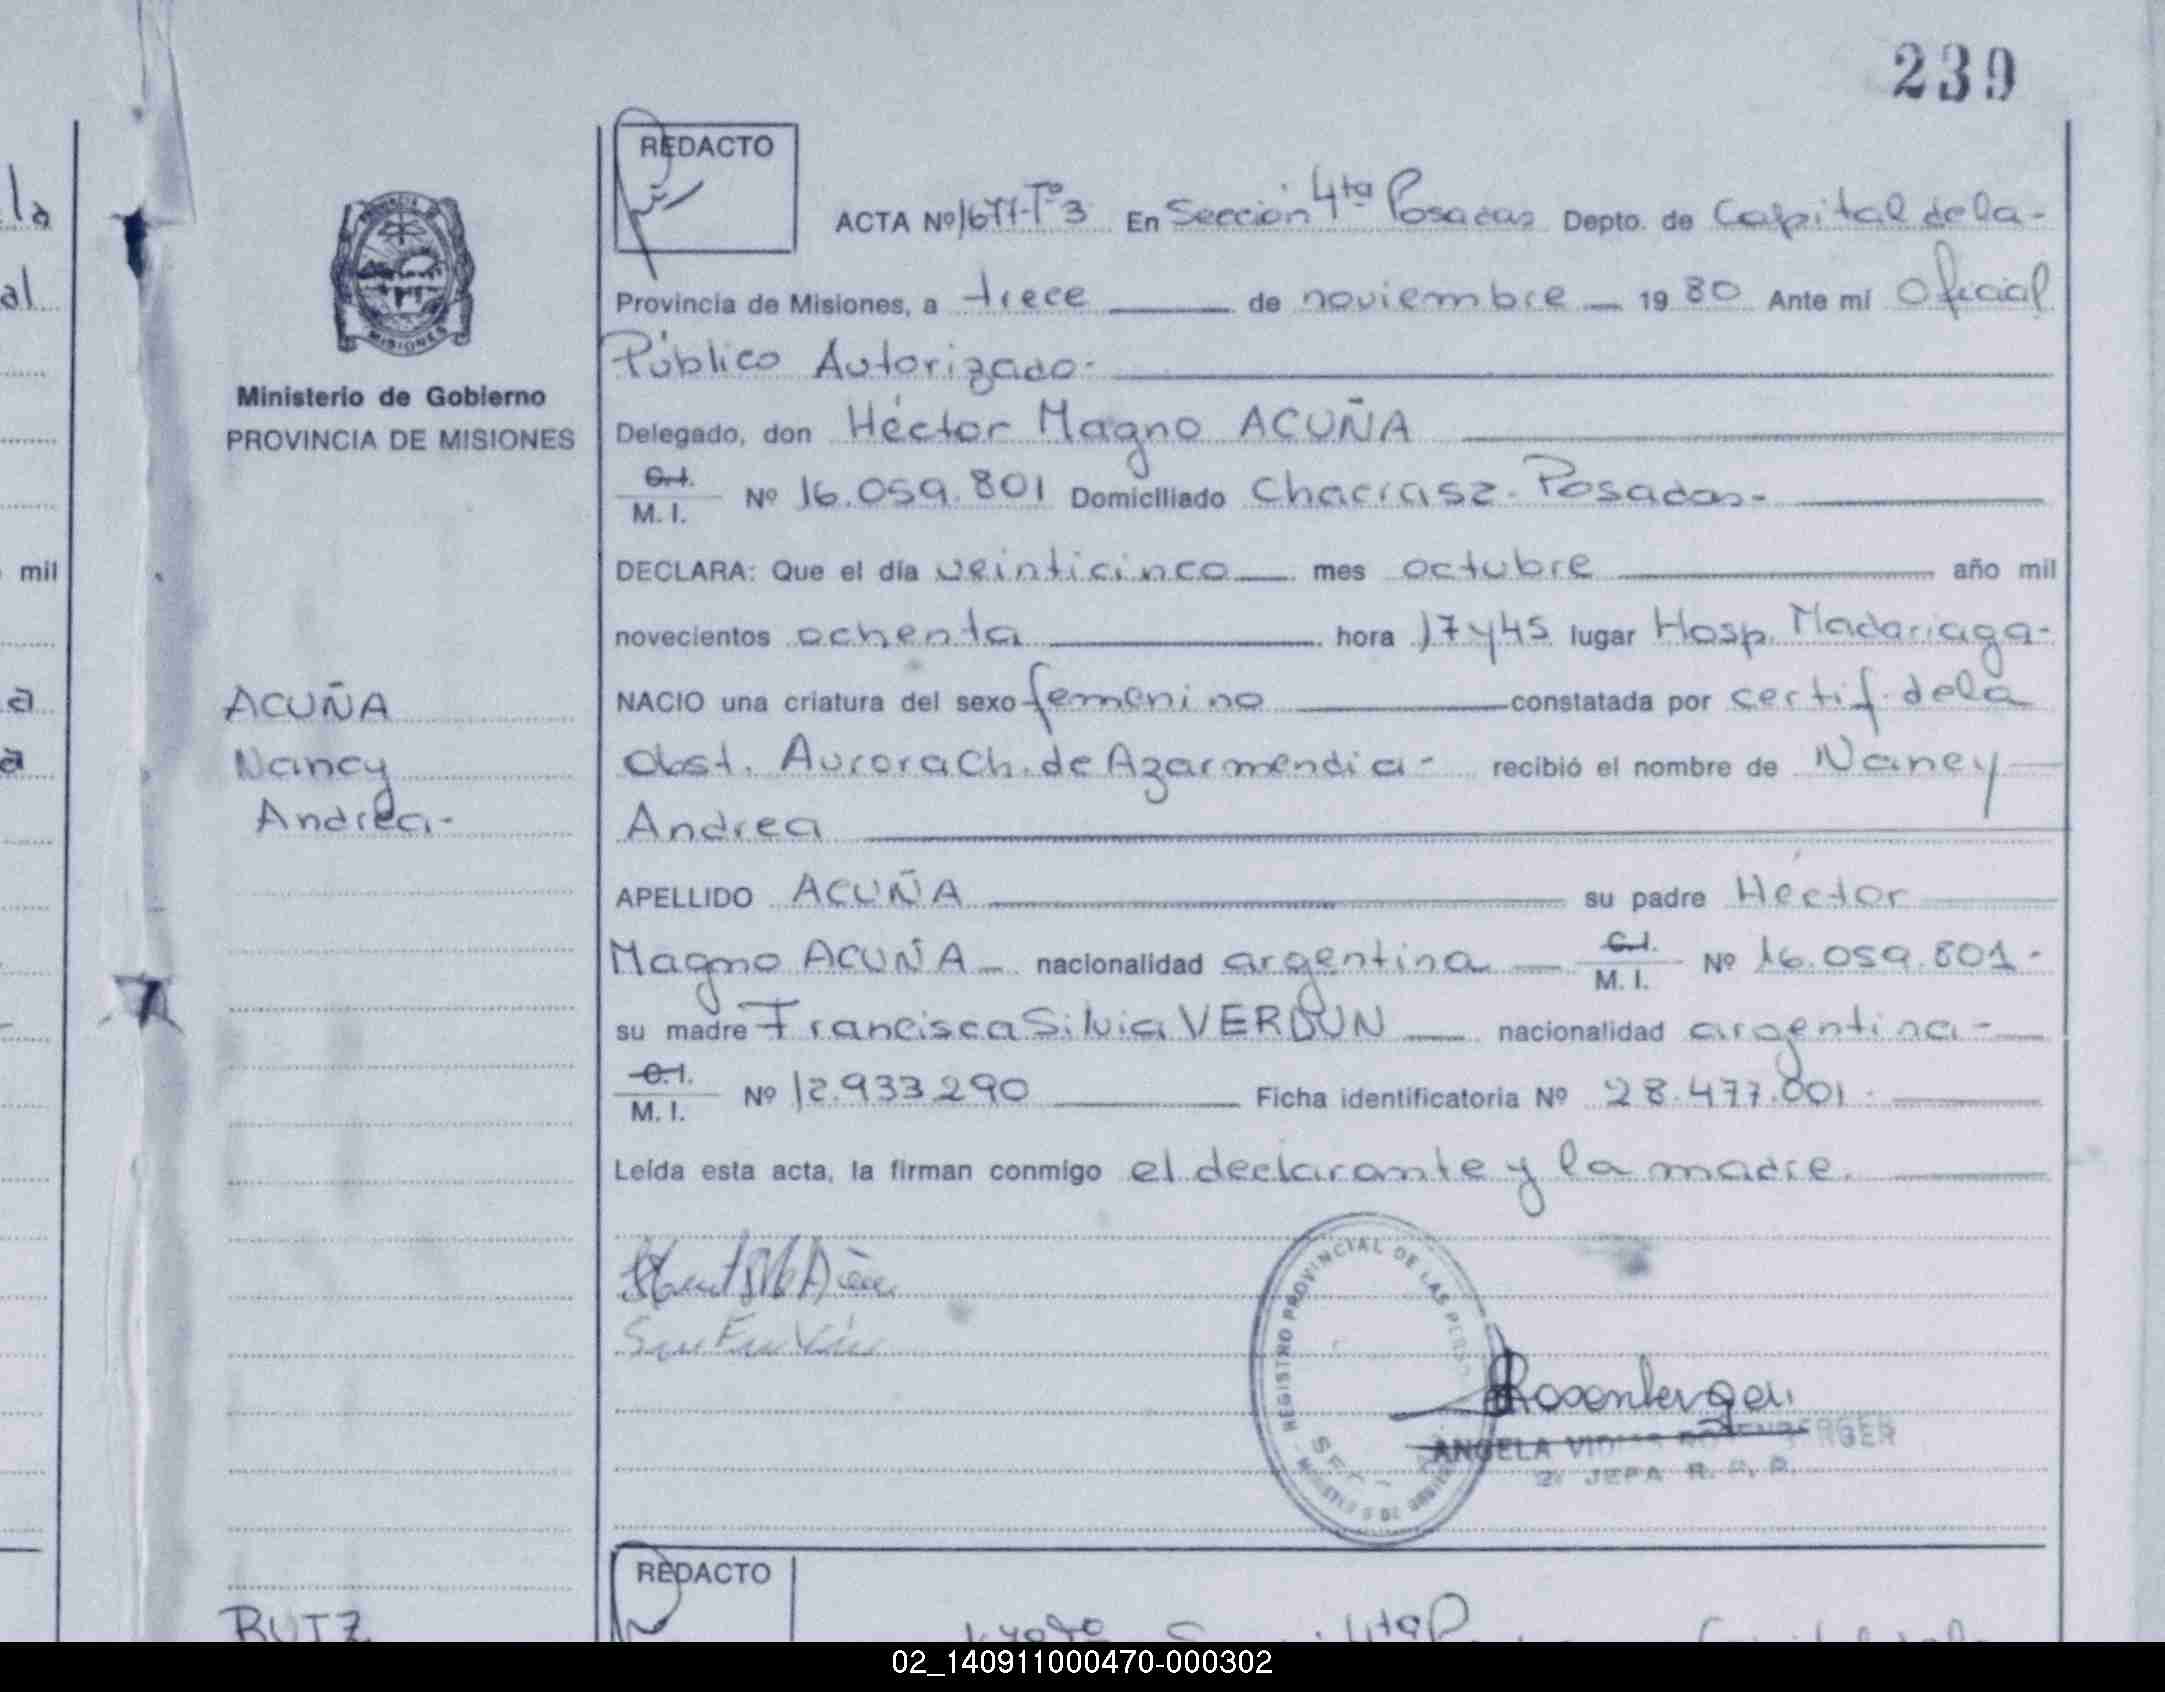 239
REDACTO
ACTA Nº 1677-Tº3 En Sección 4ta Posadas Depto. de Capital de la-
Provincia de Misiones, a trece de noviembre 1980 Ante mí Oficial
Público Autorizado-
Delegado, don Héctor Magno ACUÑA
C.I.
M. I. Nº 16.059.801 Domiciliado Chacra 52- Posadas-
DECLARA: Que el día veinticinco mes octubre año mil
novecientos ochenta hora 17 y 45 lugar Hosp. Madariaga-
NACIO una criatura del sexo femenino constatada por certif. de la
obst. Aurora Ch. de Azarmendia- recibió el nombre de Nancy
Andrea
APELLIDO ACUÑA su padre Héctor
Magno ACUÑA nacionalidad argentina C.I. M. I. Nº 16.059.801-
su madre Francisca Silvia VERDUN nacionalidad argentina-
C.I.
M. I. Nº 12.933.290 Ficha identificatoria Nº 28.477.001-
Leída esta acta, la firman conmigo el declarante y la madre.
REGISTRO PROVINCIAL DE LAS
Rosenberger
ANGELA ROSENBERGER
JEFA R. P. P.
MISIONES
Ministerio de Gobierno
PROVINCIA DE MISIONES
ACUÑA
Nancy
Andrea-
la
al
mil
a
a
REDACTO
RUIZ
02_140911000470-000302